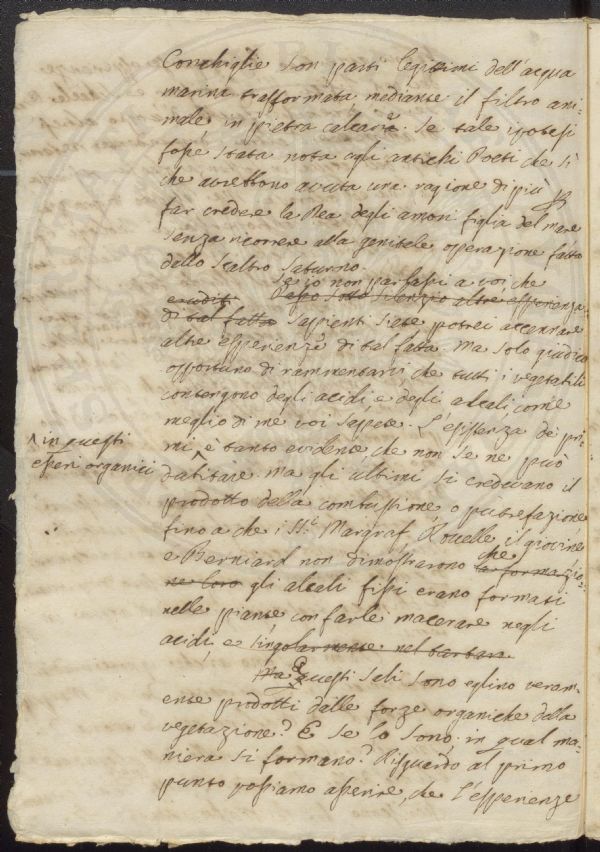 Conchiglie son parti legitimi dell'acqua
marina trasformata, mediante il filtro ani-
male, in pietra calcaria. Se tale ipotesi
fosse stata nota agli antichi Poeti che sì
che avrebbono avuta una ragione di più
far credere la Dea degli amori figlia del mare
senza ricorrere alla genitale operazione fatta
dallo scaltro Saturno.
Se io non parlassi a voi, che
eruditi Passo sotto silenzio altre esperienze
di tal fatta sapienti siete potrei accennare
altre esperienze di tal fatta. Ma solo giudico
opportuno di rammentarvi che tutti i vegetabili
contengono degli acidi, e degli alcali com'è
meglio di me voi sapete. L'esistenza de' pri-
mi, è tanto evidente, che non se ne può
in questi
esseri organici
dubitare. Ma gli ultimi si credevano il
prodotto della combustione o putrefazione
fino a che i SS.ri Margraf, Rouelle il giovine
e Berniard non dimostrarono che la formazio-
ne loro gli alcali fissi erano formati
nelle piante con farle macerare negli
acidi, e singolarmente nel
Ma Questi sali sono eglino veram-
ente prodotti dalle forze organiche della
vegetazione? E se lo sono in qual ma-
niera si formano? Risguardo al primo
punto possiamo asserire, che l'esperienze